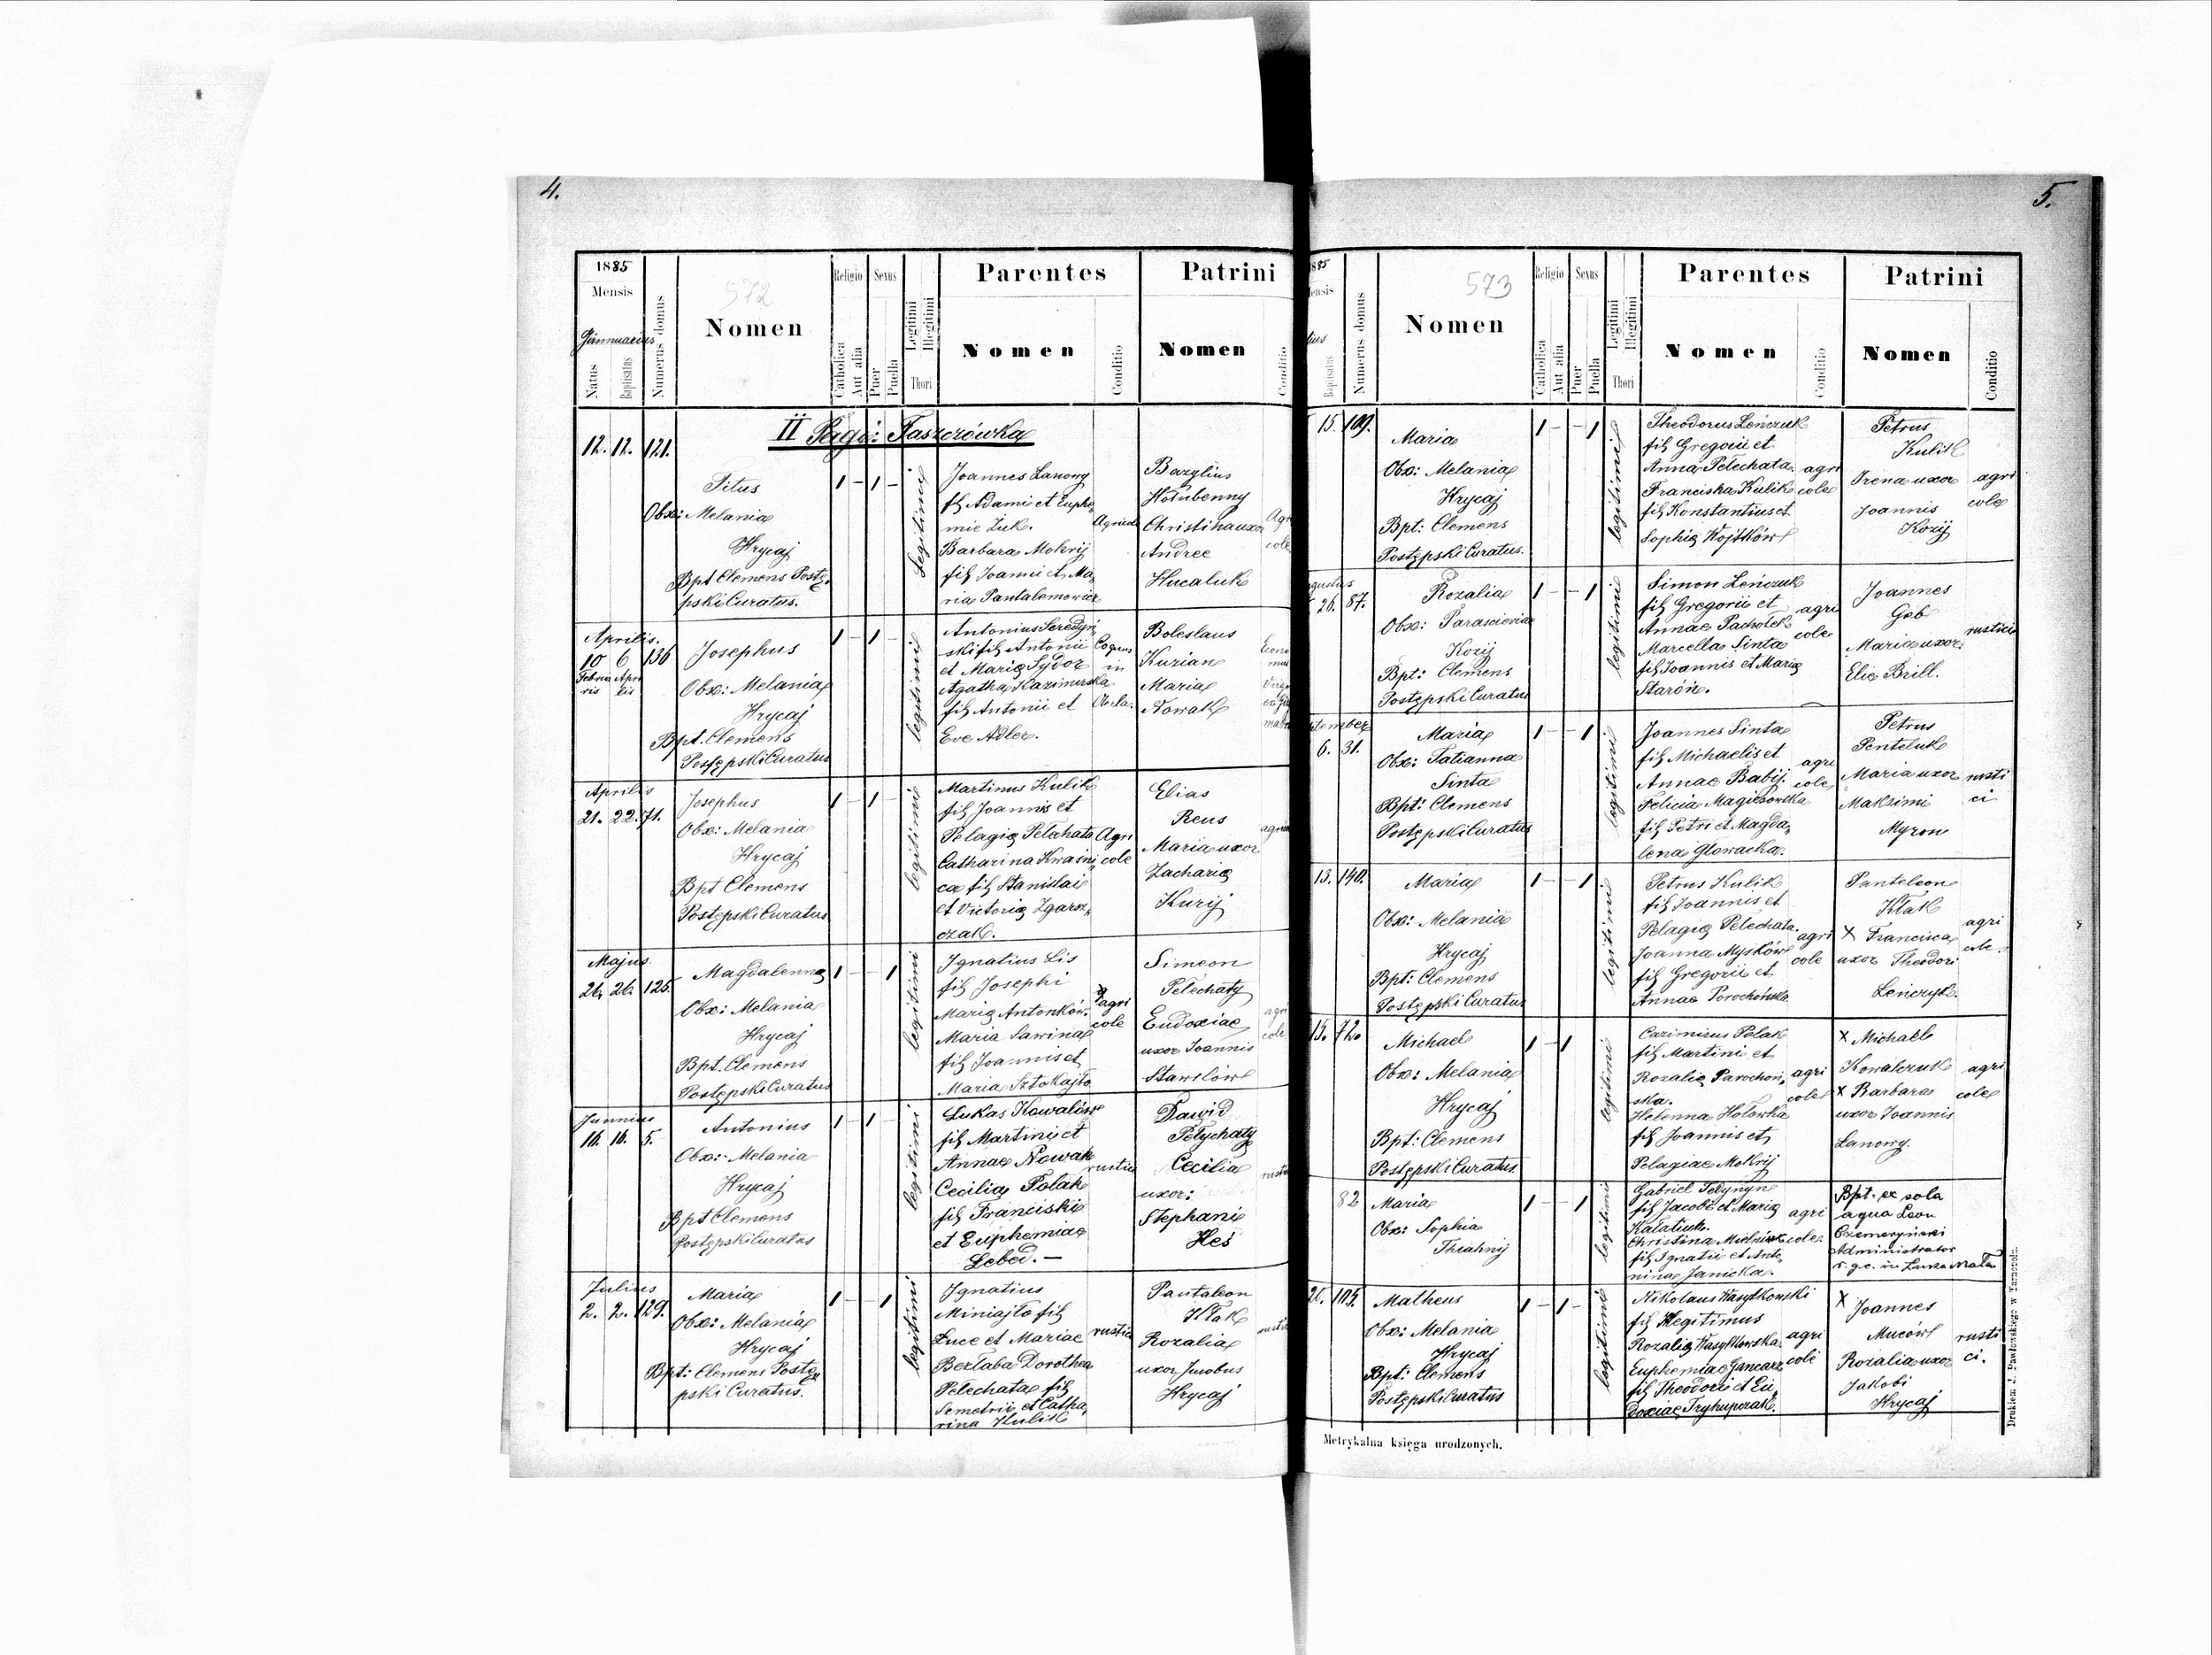 4.
1885
Mensis
Januarius
Natus
Baptisatus
Numerus domus
572
Nomen
Religio
Catholica
Aut alia
Sexus
Puer
Puella
Legitimi
Illegitimi
Thori
Parentes
Nomen
Conditio
Patrini
Nomen
Conditio
II Pagi: Taszczówka
12. 12. 121.
Titus
Obx: Melania
Hrycaj
Bpt Clemens Postę,
pski Curatus.
1 - 1 -
Legitimi
Joannes Lanowy
filg Adami et Euphe,
mie Żuk.
Barbara Mokrij
filg Joannii et Ma,
ria Pantalemowicz
Agricole
Bazylius
Hołubenny
Christina uxor
Andree
Hucaluk
Agri
cole
Aprilis.
10 6 136
Februa Apri
ris lis
Josephus
Obx: Melania
Hrycaj
Bpt. Clemens
Postępski Curatus
1 - 1 -
legitimi
Antonius Seredyń,
ski filg Antonii
et Marię Sydor
Agatha Kazimirska
filg Antonii et
Eve Adler.
Coquus
in
Boleslaus
Kurian
Maria
Nowak
Econo
mus
Aprilis
21. 22. 71.
Josephus
Obx: Melania
Hrycaj
Bpt Clemens
Postępski Curatus
1 - 1 -
legitimi
Martinus Kulik
filg Joannis et
Pelagię Pelechata
Catharina Kraśni,
ca filg Stanislai
et Victorię Zgarsz,
czak.
Agri
cole
Elias
Reus
Maria uxor
Zacharię
Kurij
Majus
26. 26. 125.
Magdalenna
Obx: Melania
Hrycaj
Bpt. Clemens
Postępski Curatus
1 - 1
legitimi
Ignatius Lis
filg Josephi
Marię Antonków.
Maria Sawina
filg Joannis et
Maria Sztokajło
agri
cole
Simeon
Pelechaty
Eudoxiae
uxor Joannis
Stawslów
agri
cole
Junnius
16. 16. 5.
Antonius
Obx: Melania
Hrycaj
Bpt Clemens
Postępski Curatus
1 - 1
legitimi
Lukas Kowalów
filg Martini et
Annae Nowak
Cecilię Polak
filg Franciski
et Euphemiae
Lebed. —
rustici
Dawid
Pełychaty
Cecilia
uxor:
Stephani
Heś
Julius
2. 2. 129.
Maria
Obx: Melania
Hrycaj
Bpt: Clemens Postę,
pski Curatus.
1 - 1
legitimi
Ignatius
Miniajło filg
Luce et Mariae
Bezłaba Dorothea
Pelechata filg
Semetrii et Catha,
rina Kulik
rustici
Pantaleon
Kłak
Rozalia
uxor Jacobus
Hrycaj
5.
573
Nomen
Numerus domus
Religio
Catholica
Aut alia
Sexus
Puer
Puella
Legitimi
Illegitimi
Thori
Parentes
Nomen
Conditio
Patrini
Nomen
Conditio
15. 109.
Maria
Obx: Melania
Hrycaj
Bpt: Clemens
Postępski Curatus.
1 - - 1
legitimi
Theodorus Leńczuk
filg Gregorii et
Anna Pelechata.
Franciska Kulik
filg Konstantius et
Sophię Wojtków
agri
cole
Petrus
Kulik
Irena uxor
Joannis
Kozij
agri
cole
26. 87.
Rozalia
Obx: Parascievia
Kozij
Bpt: Clemens
Postępski Curatus
1 - - 1
legitimi
Simon Leńczuk
filg Gregorii et
Annae Pacholek
Marcella Sinta
filg Joannis et Marię
Staróń.
agri
cole
Joannes
Geb
Maria uxor
Elie Brill.
rustici
6. 31.
Maria
Obx: Tatianna
Sinta
Bpt: Clemens
Postępski Curatus
1 - - 1
legitimi
Joannes Sinta
filg Michaelis et
Annae Babij.
Felicia Magierowska
filg Petri et Magda,
lena Glowacka.
agri
cole
Petrus
Penteluk
Maria uxor
Maksimi
Myron
rusti
ci
13. 140.
Maria
Obx: Melania
Hrycaj
Bpt: Clemens
Postępski Curatus
1 - - 1
legitimi
Petrus Kulik
filg Joannis et
Pelagię Pelechata.
Joanna Myśków
filg Gregorii et
Annae Porochońska
agri
cole
Panteleon
Kłak
x Francisca
uxor Theodori
Leńczyk.
agri
cole
15. 72.
Michael
Obx: Melania
Hrycaj
Bpt: Clemens
Postępski Curatus.
1 - 1
legitimi
Cazimirus Polak
filg Martini et
Rozalię Parochoń,
ska.
Helenna Hołowka
filg Joannis et
Pelagiae Mokrij
agri
cole
x Michael
Kowalczuk
x Barbara
uxor Joannis
Lanowy.
agri
cole
82
Maria
Obx: Sophia
1 - 1
legitimi
Gabriel
filg Jacobi et Marię
Kałatiuk.
Christina
filg Ignatii et Anto,
nina Janicka.
agri
cole
Bpt. ex sola
aqua Leon
Czemeryński
Administrator
r. g. c. in Luka Mała
21. 105.
Matheus
Obx: Melania
Hrycaj
Bpt: Clemens
Postępski Curatus
1 - 1 -
legitimi
Nikolaus Wasylkowski
filg Illegitimus
Rozalię Wasylkowska.
Euphemiae Jancarz
filg Theodori et Eu,
doxiae Tryhupczak.
agri
coli
x Joannes
Muców
Rozalia uxor
Jakobi
Hrycaj
rusti
ci.
Metrykalna księga urodzonych.
Drukiem J. Pawłowskiego w Tarnopolu.